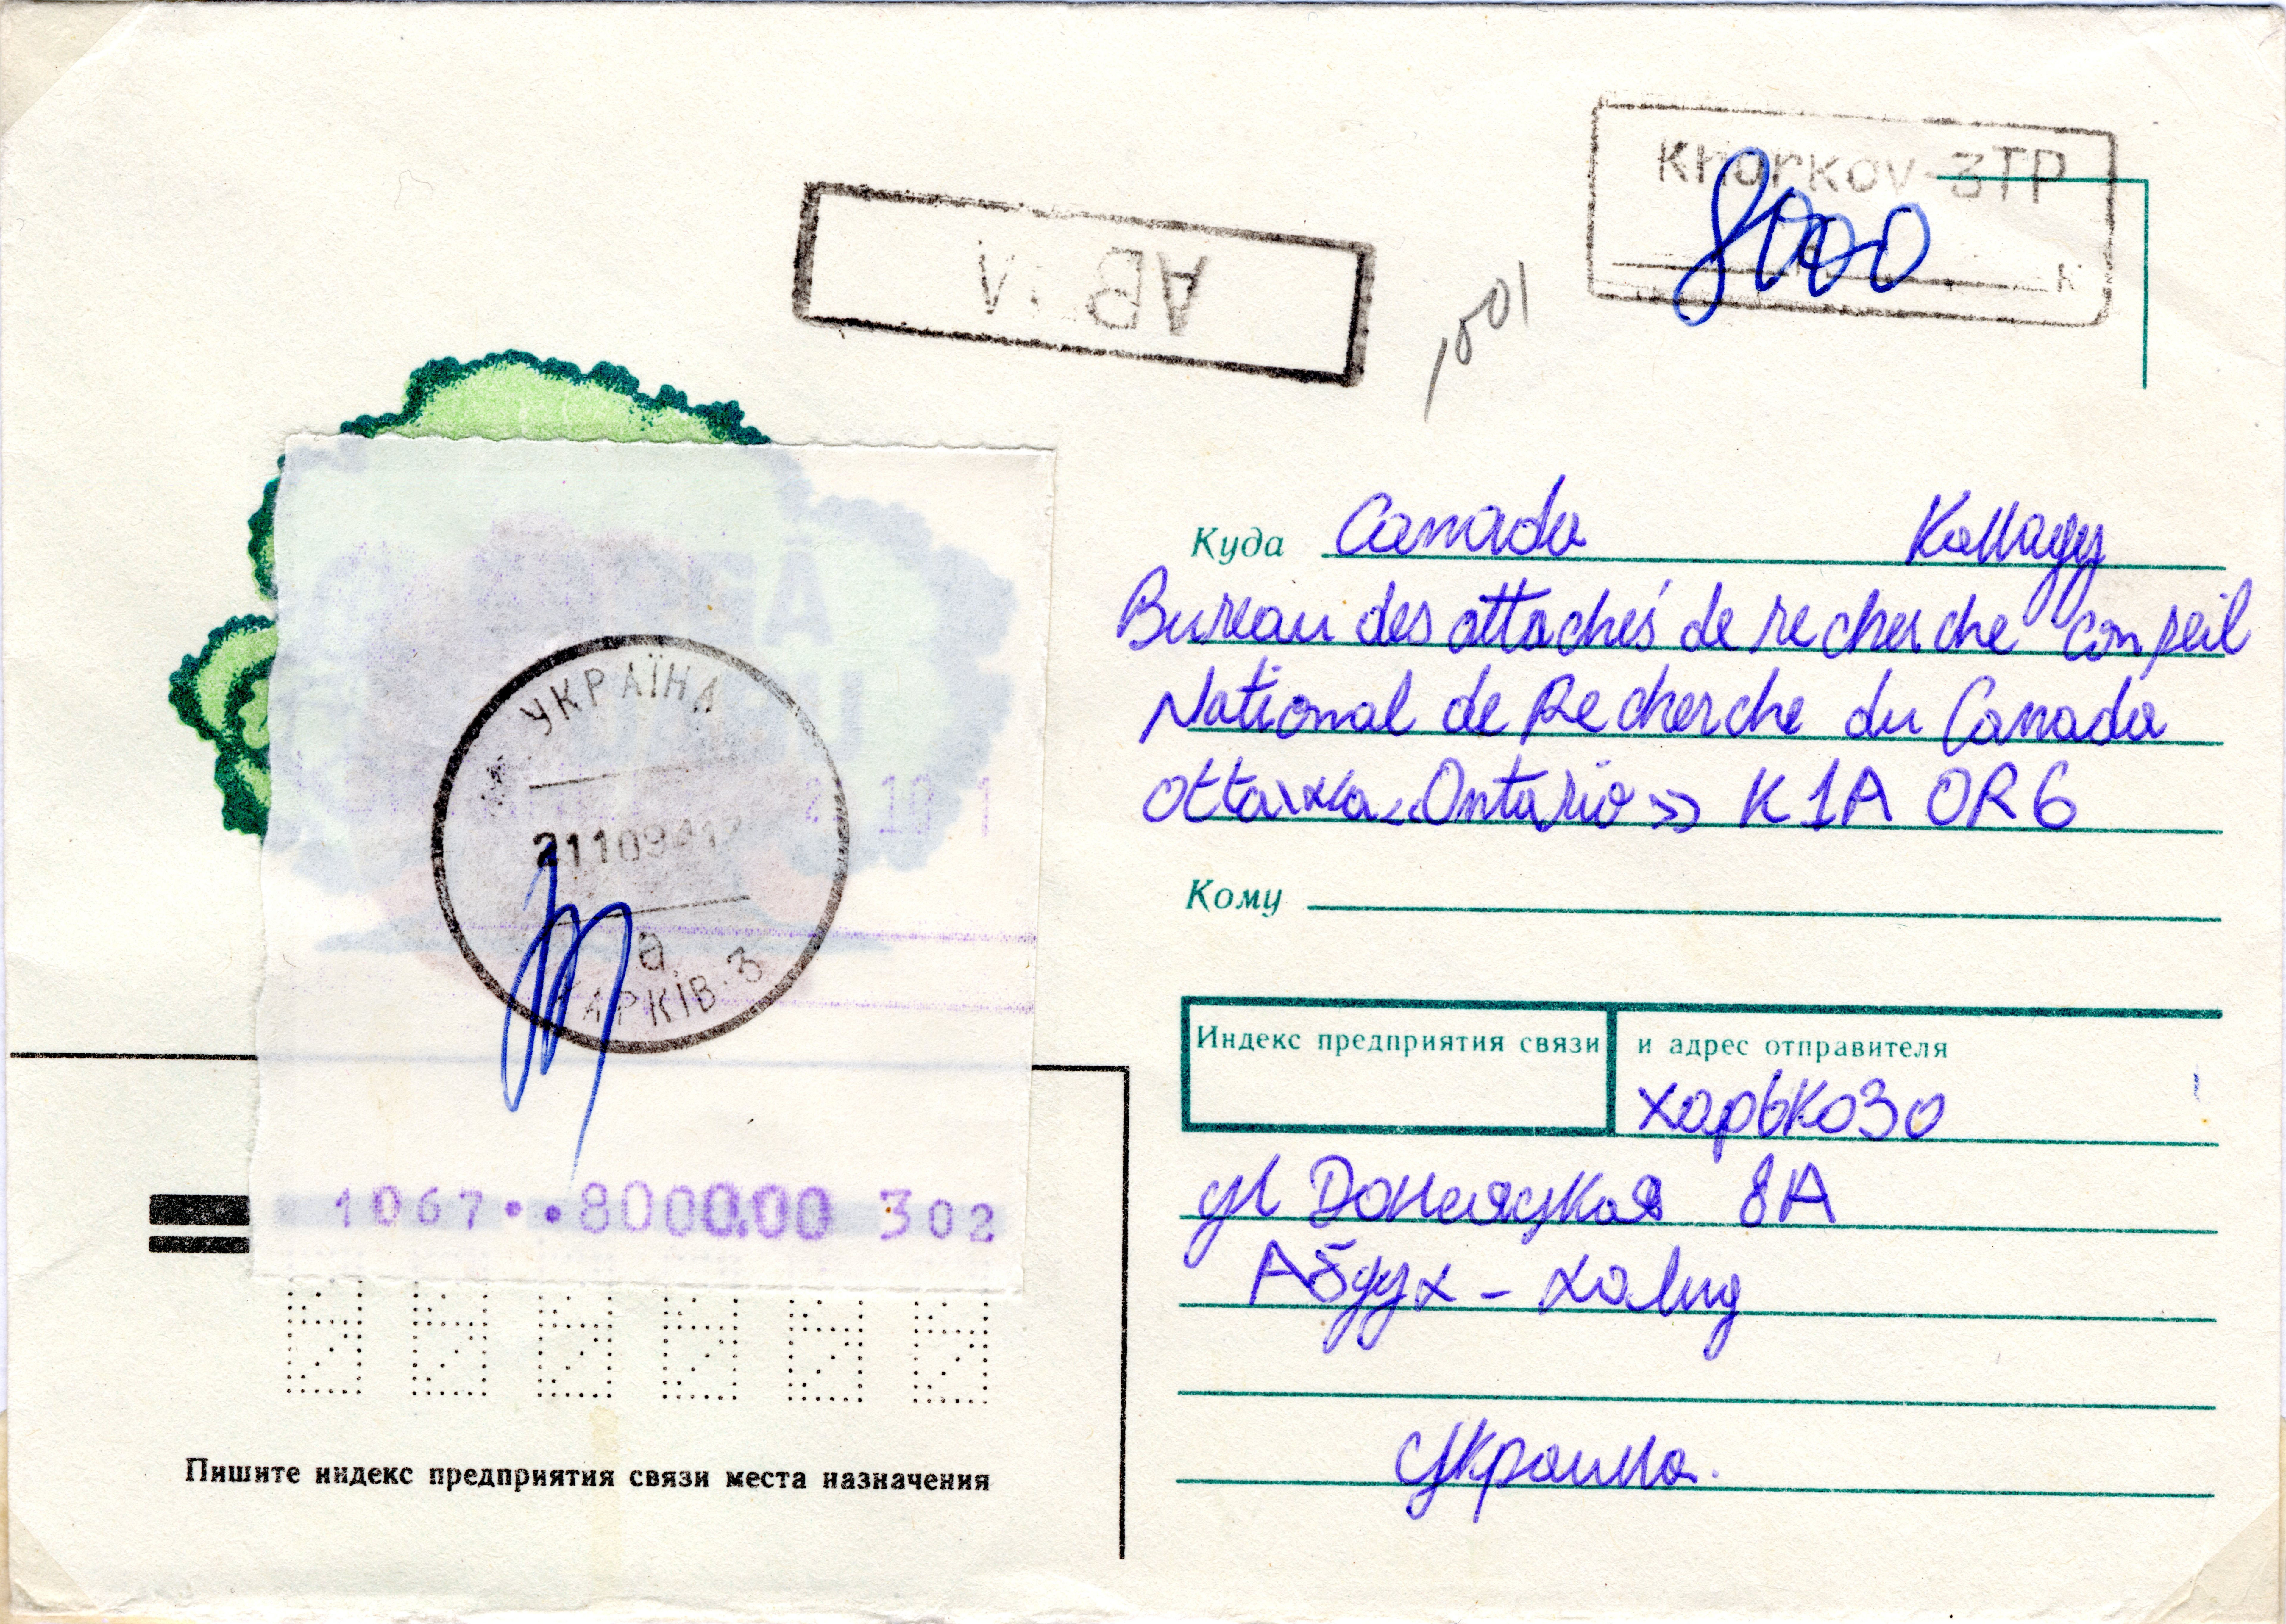 KHarKov-3TP
8000
к
Куда Canada Каnаду
Bureau des attachés de recherche conseil
National de Recherche du Canada
Ottawa «Ontario» K1A OR6
Кому
УКРАЇНА
21109412
а
ХАРКІВ-3
1067··8000.00 302
Индекс предприятия связи и адрес отправителя
Харько30
ул Донецкая 8А
Абдух - Халид
Украина.
Пишите индекс предприятия связи места назначения